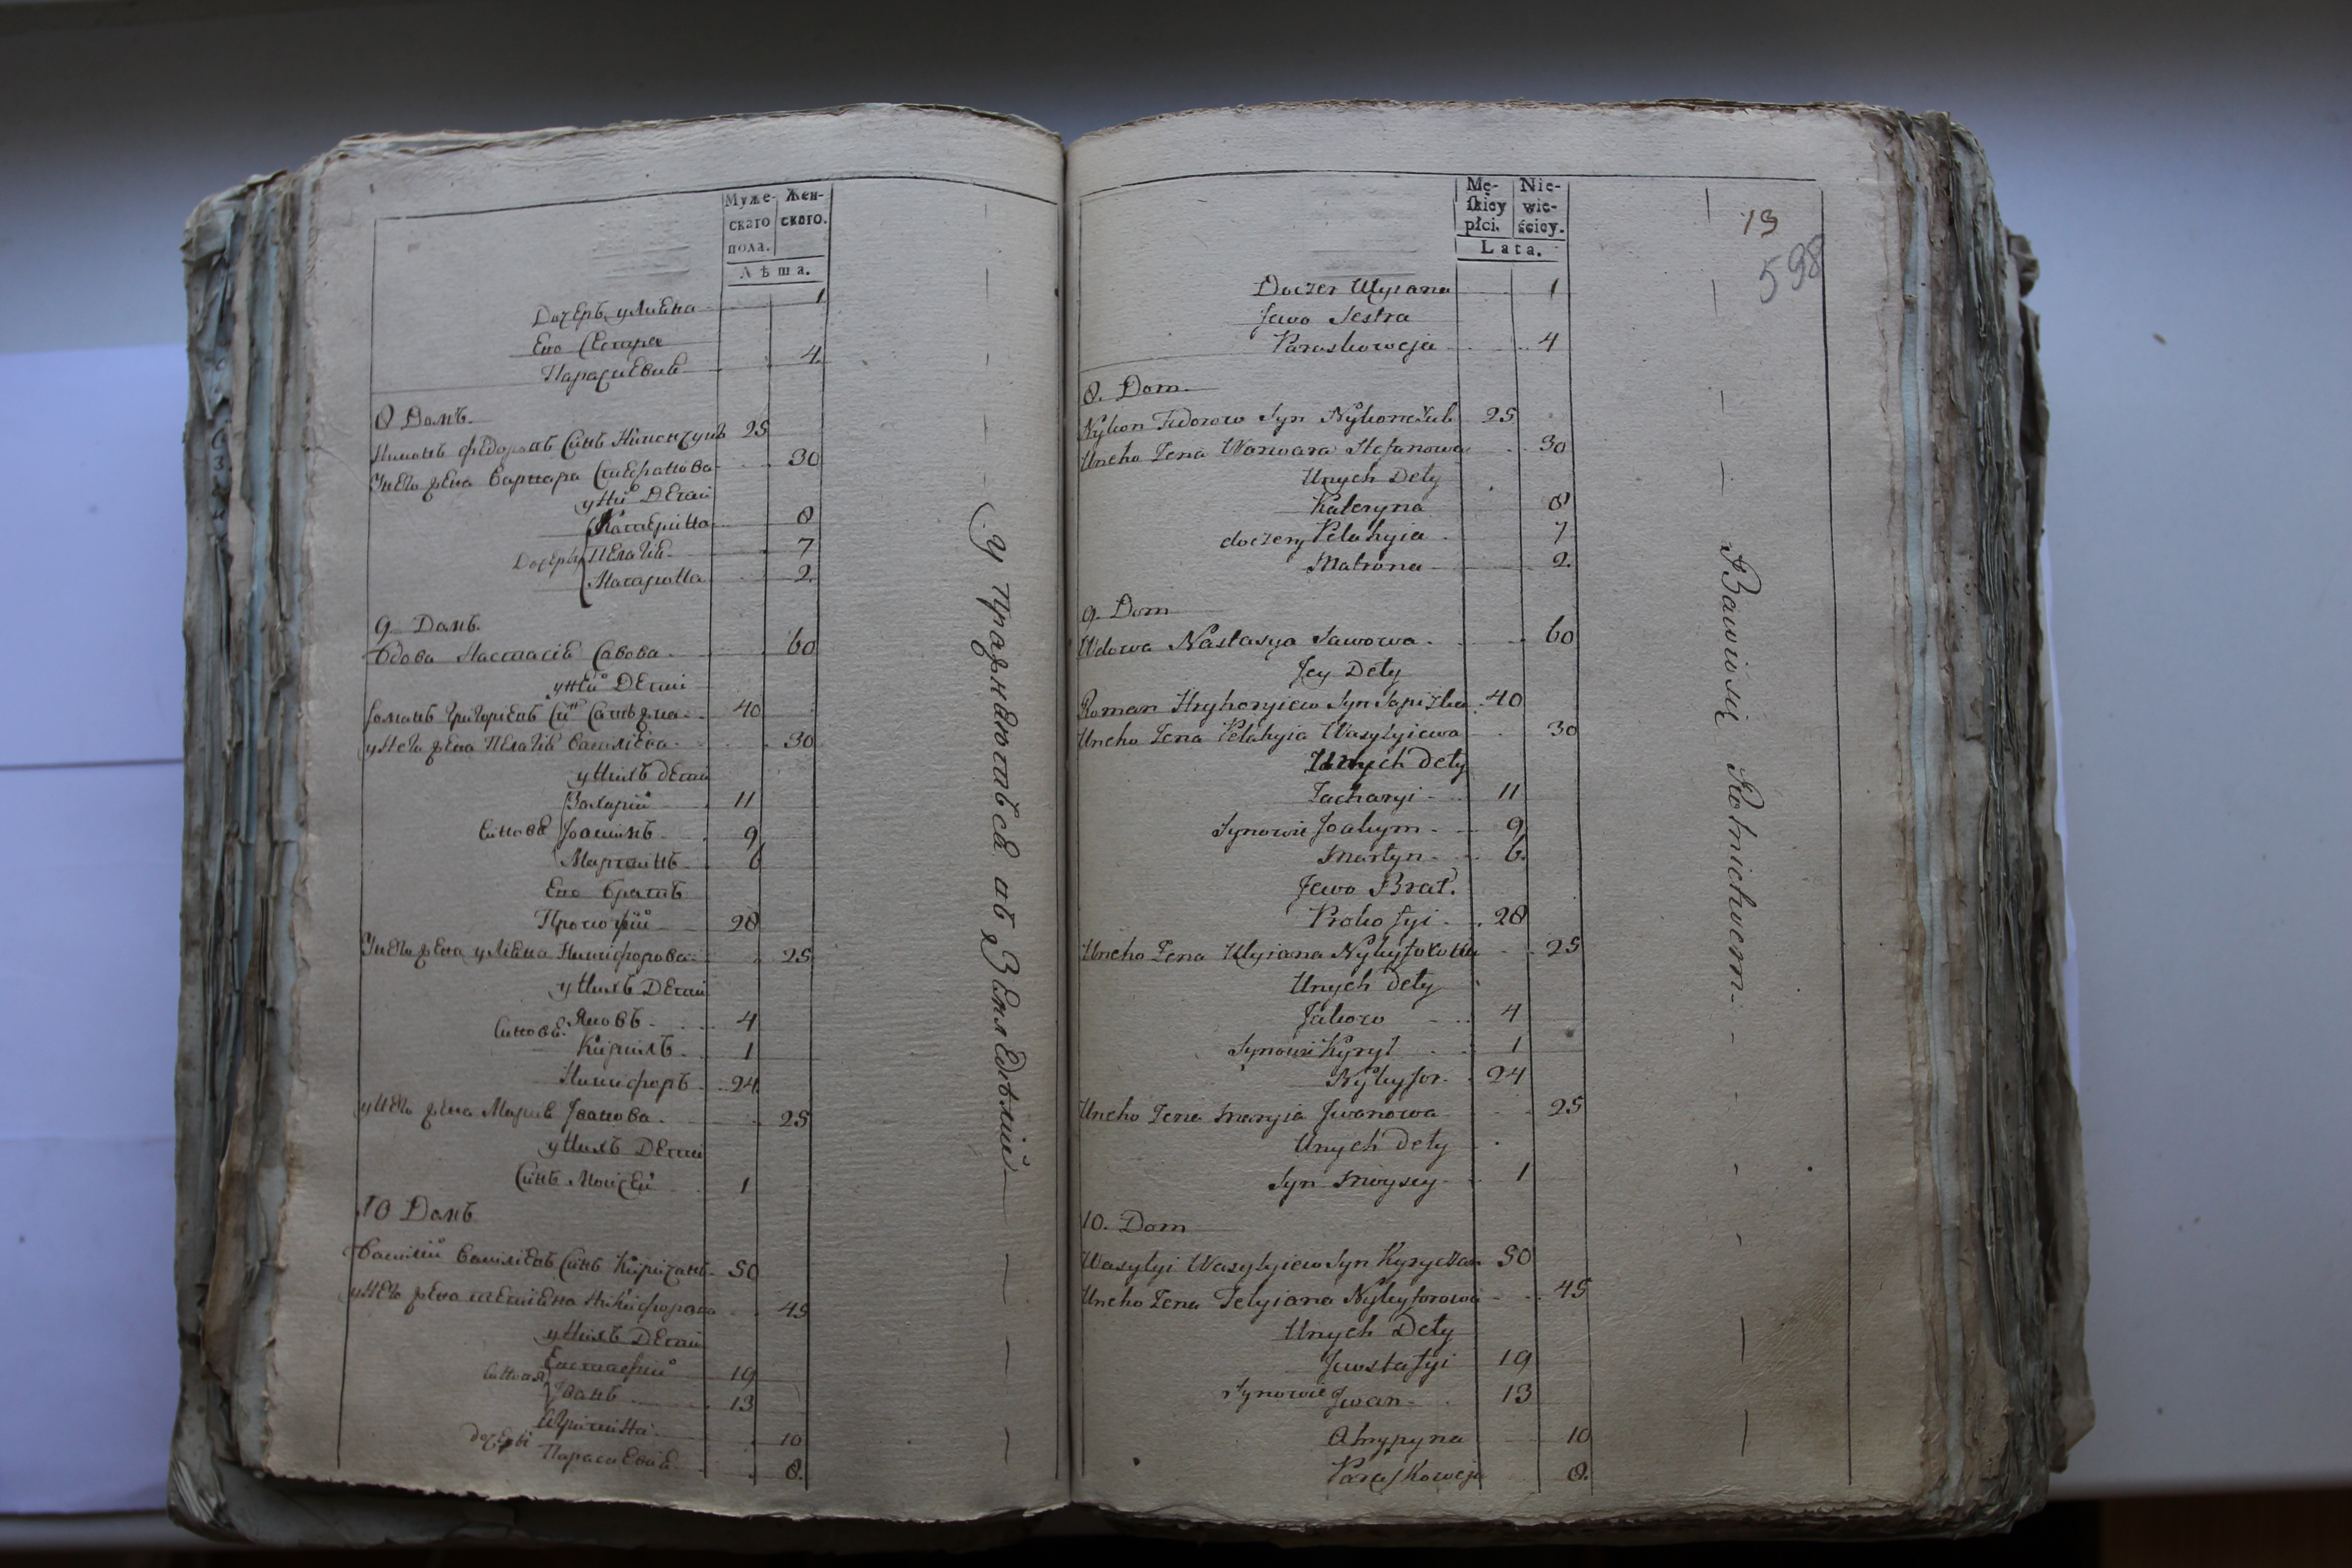 Муже-
скаго
пола.
Жен-
скаго.
Лѣта.
Дочеръ улиѣна 1
Его Сестра
Параскевиѣ 4.
8 Домъ.
Никонъ Федоровъ Синъ Никончукъ 25
Унего жена Варвара Стефанова 30
у них Дети
Катерина 8
Дочери Пелагиѣ 7
Матрона 2.
9. Домъ.
Вдова Настасиѣ Савова 60
уней Дети
Романъ Григориевъ Си͏нъ 40
унего жена Пелагиѣ Василиева 30
у нихъ дети
Захарий 11
Синовѣ Іоакимъ 9
Мартинъ 6
Его братъ
Прокофий 28
Унего жена улиѣна Никифорова 25
у нихъ Дети
Синовѣ Яковъ 4
Кирилъ 1
Никифоръ 24
унего жена Мариѣ Іванова 25
у нихъ Дети
Синъ Моисей 1
10 Домъ
Василий Василиевъ Синъ Киричакъ 50
унего жена Никифорова 45
у нихъ Дети
Евстафий 19
Синовя Іванъ 13
10
дочери Параскевиѣ 8.
У пражнаютъся въ Земледѣлии
Mę-
skiey
płci.
Nie-
wie-
ściey.
Lata.
13
598
Doczer Ulyiana 1
Jewo Sestra
Paraskoweja 4
8. Dom.
Nykon Fedorow Syn Nykonczuk 25
Uneho Żena Warwara Stefanowa 30
Unych Dety
Kateryna 8
doczery Pelahyia 7
Matrona 2.
9. Dom
Wdowa Nastasya Sawowa 60
Jey Dety
Roman Hryhoryiew Syn 40
Uneho Żena Pelahyia Wasylyiewa 30
Unych Dety
Zacharyi 11
Synowie Joakym 9
Martyn 6.
Jewo Brat.
Prokofyi 28
Uneho Żena Ulyiana Nykyforowa 25
Unych Dety
Jakow 4
Synowie Kyrył 1
Nykyfor 24
Uneho Żena Maryia Jwanowa 25
Unych Dety
Syn Moysey 1
10. Dom
Wasylyi Wasylyiew Syn Kyryczak 50
Uneho Żena Tetyiana Nykyforowa 45
Unych Dety
Jewstafyi 19
Synowie Jwan 13
Ahrypyna 10
Paraskoweja 8.
Bawiwsię Rolnichwem